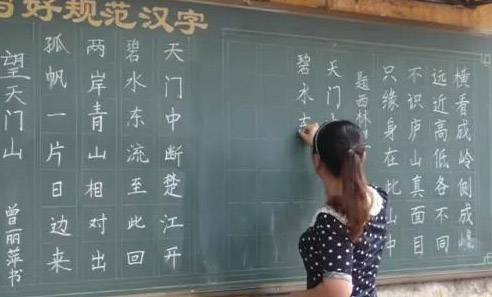 写好规范汉字
横看成岭侧成峰
远近高低各不同
不识庐山真面目
只缘身在此山中
题西林
天门
碧水东
天门中断楚江开
碧水东流至此回
两岸青山相对出
孤帆一片日边来
望天门山
曾丽萍书